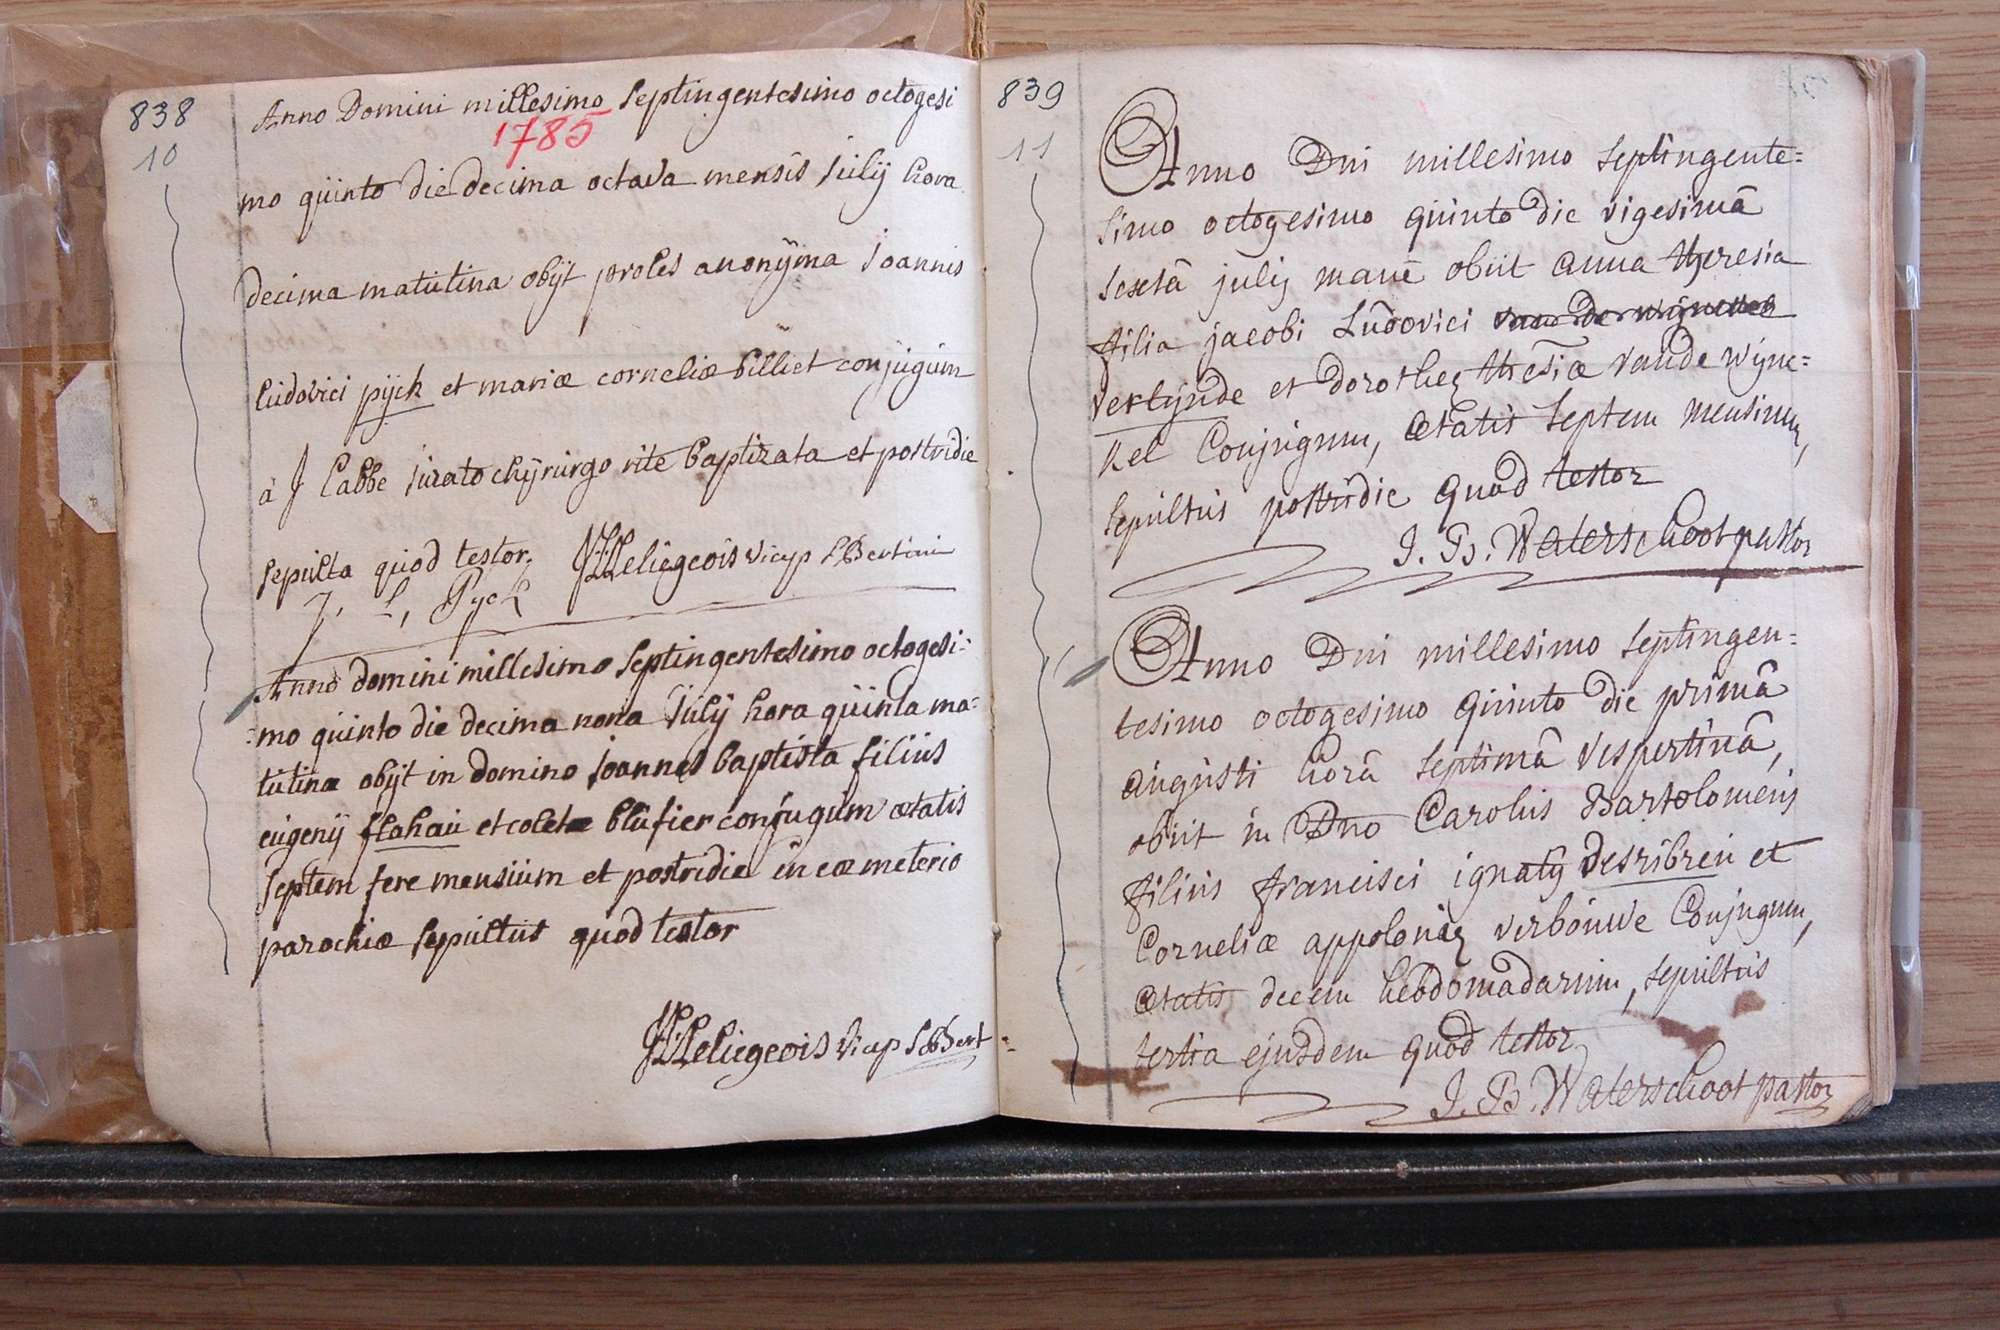 838
10
Anno Domini millesimo septingentesimo octogesi
1785
mo quinto die decima octava mensis julij hora
decima matutina obijt proles anonijma joannis
ludovici pijck et mariæ corneliæ billiet conjugum
à J labbe jurato chijrurgo rite baptizata et postridie
sepulta quod testor.
J. L. Pyck
Anno domini millesimo septingentesimo octogesi:
:mo quinto die decima nona julij hora quinta ma:
tutina obijt in domino joannes baptista filius
eugenij flahau et coletæ blufier conjugum ætatis
septem fere mensium et postridie in cæmeterio
parochiæ sepultus quod testor
839
11
Anno Dni millesimo septingente=
simo octogesimo quinto die vigesimâ
sextâ julij manè obiit anna theresia
filia jacobi Ludovici van de wijnckel
verlijnde et dorotheæ thesiæ vande wijnc=
kel Conjugum, ætatis septem mensium,
sepultus postridie quod testor
J. B. Waterschoot pastor
Anno Dni millesimo septingen=
tesimo octogesimo quinto die primâ
augusti horâ septimâ vespertinâ,
obiit in Dno Carolus Bartolomeus
filius francisci ignatij desribreu et
Corneliæ appoloniæ verbouwe Conjugum,
ætatis decem hebdomadarum, sepultus
tertia ejusdem quod testor
J. B. Waterschoot pastor